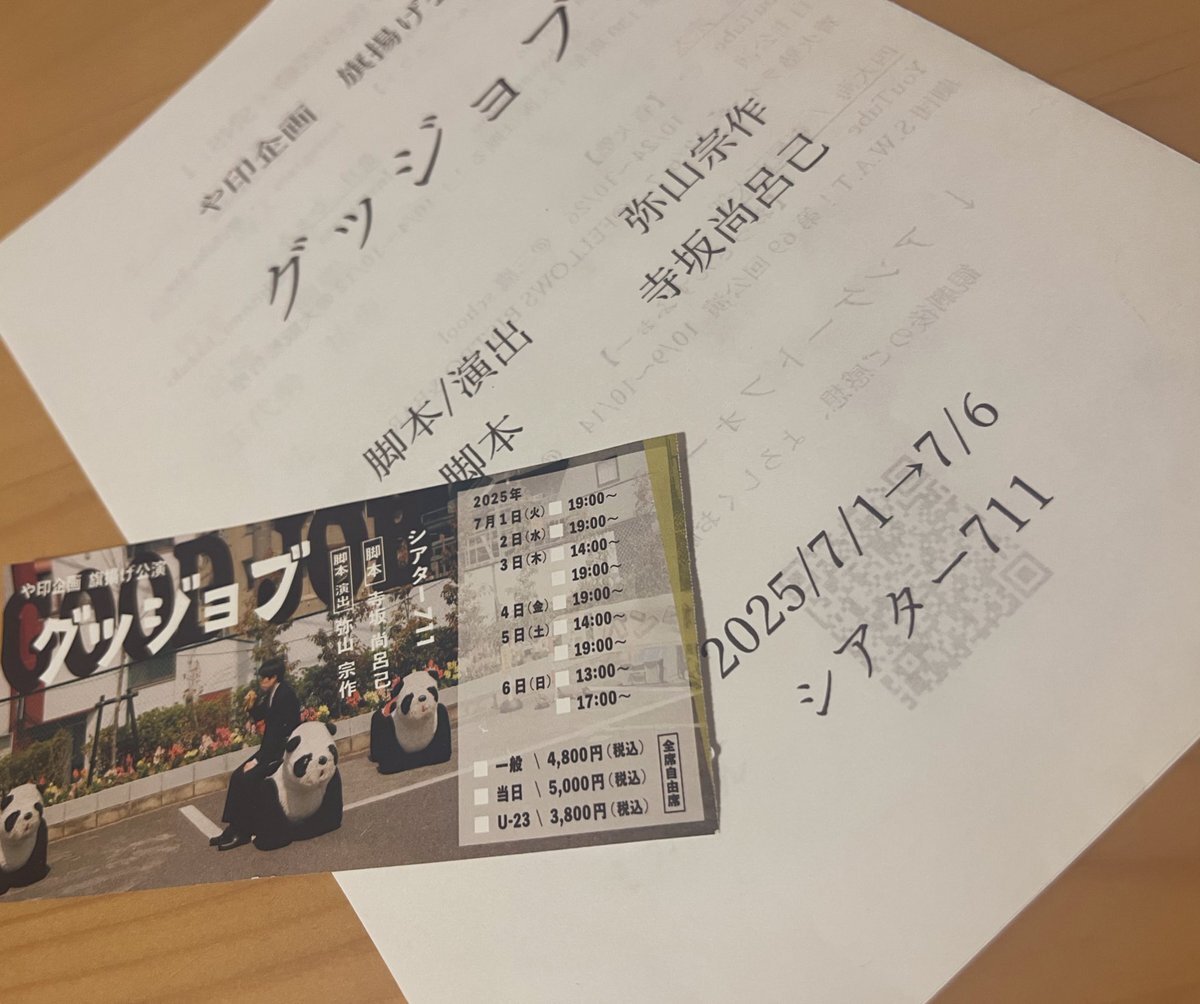 や印企画 旗揚げ
グッジョブ
脚本/演出 弥山宗作
脚本 寺坂尚呂己
2025/7/1→7/6
シアター711
GOOD JOB
や印企画 旗揚げ公演
グッジョブ
脚本 演出 弥山 宗作
脚本 寺坂 尚呂己
シアター711
2025年
7月1日(火) 19:00~
2日(水) 19:00~
3日(木) 14:00~
19:00~
4日(金) 19:00~
5日(土) 14:00~
19:00~
6日(日) 13:00~
17:00~
一般 \ 4,800円(税込)
当日 \ 5,000円(税込)
U-23 \ 3,800円(税込)
全席自由席